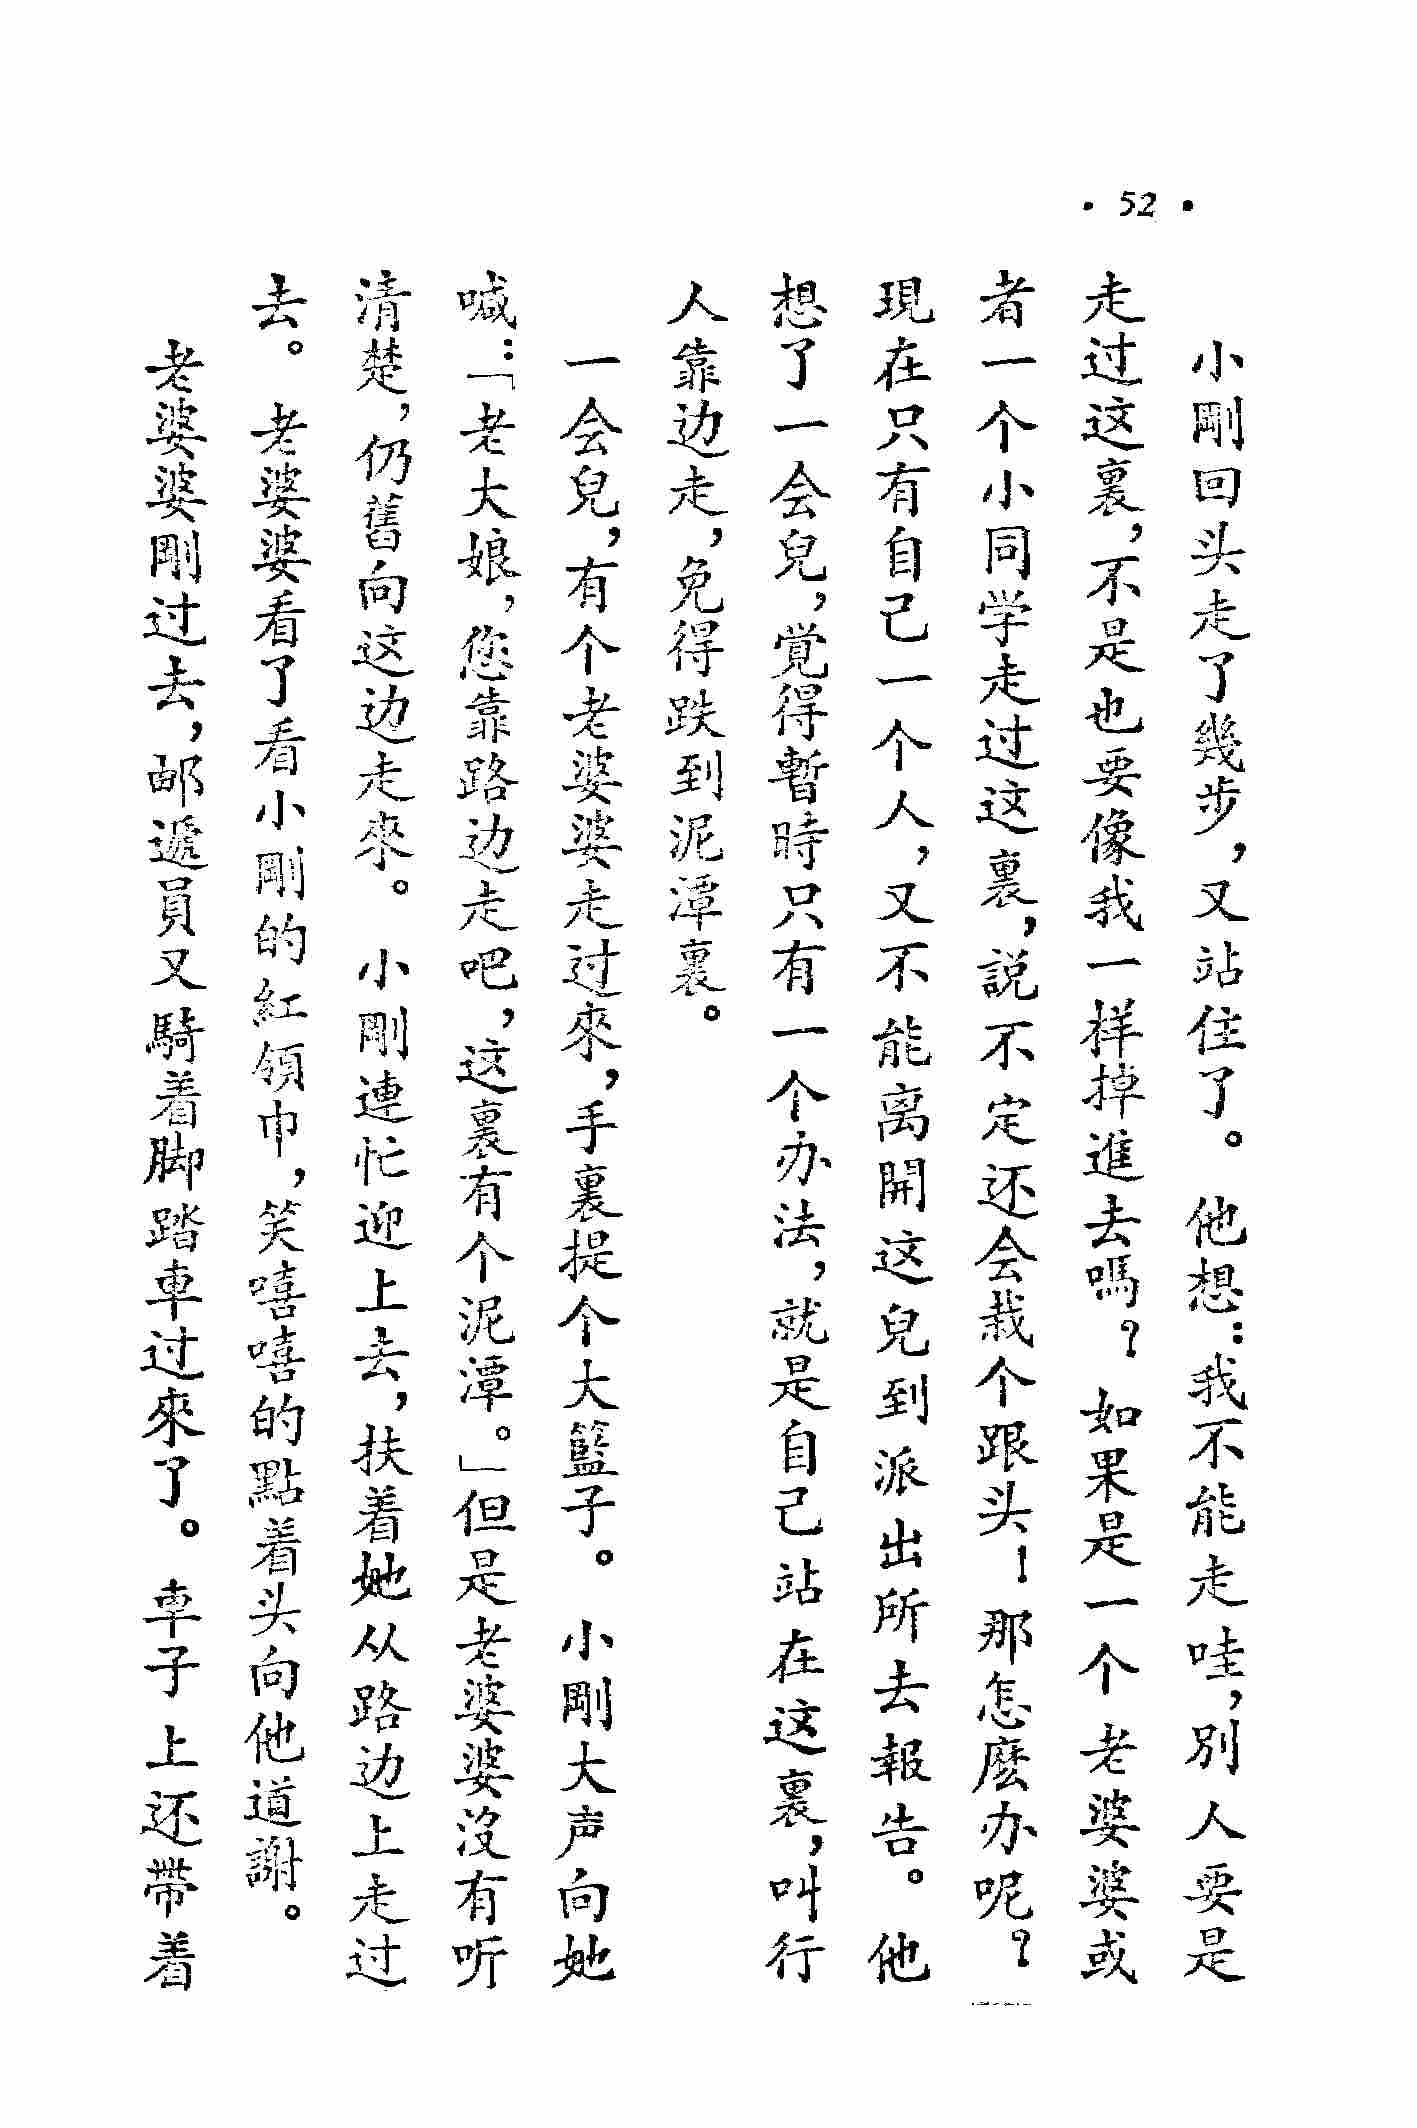 • 52 •
小剛回头走了幾步，又站住了。他想：我不能走哇，別人要是
走过这裏，不是也要像我一样掉進去嗎？如果是一个老婆婆或
者一个小同学走过这裏，説不定还会栽个跟头！那怎麽办呢？
現在只有自己一个人，又不能离開这兒到派出所去報告。他
想了一会兒，覚得暫時只有一个办法，就是自己站在这裏，叫行
人靠边走，免得跌到泥潭裏。
一会兒，有个老婆婆走过來，手裏提个大籃子。小剛大声向她
喊：「老大娘，您靠路边走吧，这裏有个泥潭。」但是老婆婆沒有听
清楚，仍舊向这边走來。小剛連忙迎上去，扶着她从路边上走过
去。老婆婆看了看小剛的紅領巾，笑嘻嘻的點着头向他道謝。
老婆婆剛过去，邮遞員又騎着脚踏車过來了。車子上还帶着